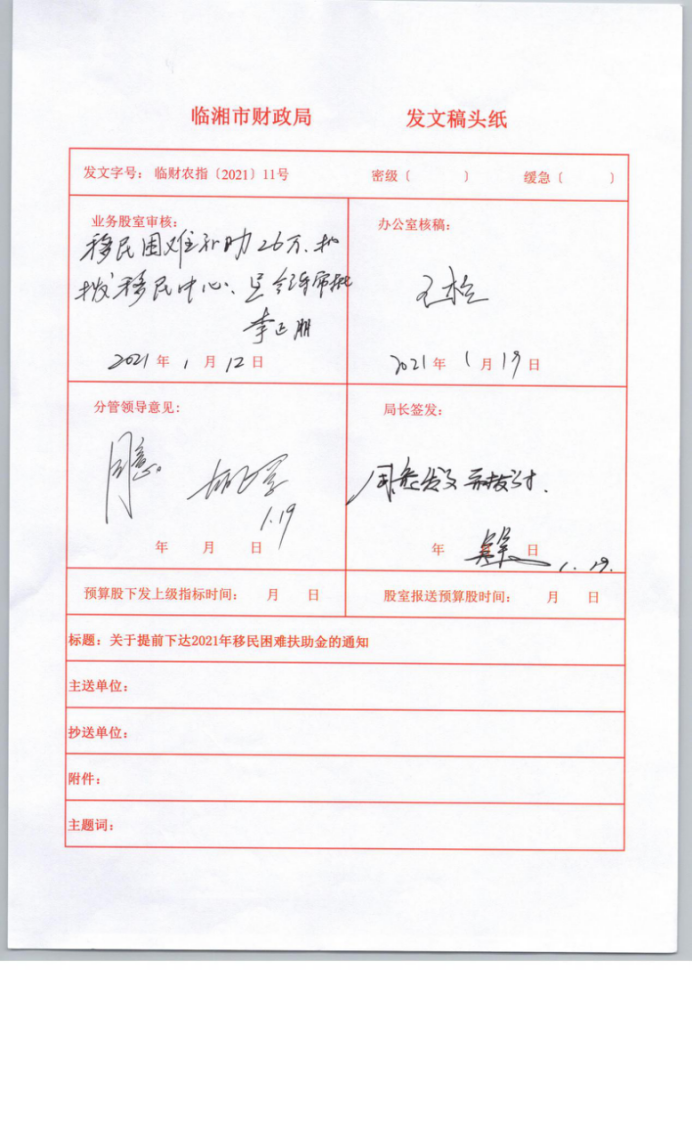 临湘市财政局 发文稿头纸
发文字号：临财农指〔2021〕11号 密级（ ） 缓急（ ）
业务股室审核：
移民困难补助26万、拟
拨移民中心、呈领导审批
李正朋
2021年1月12日
办公室核稿：
王检
2021年1月19日
分管领导意见：
同意。
1.19
年 月 日
局长签发：
同意发文并拨付.
年 月 日
1.19.
预算股下发上级指标时间： 月 日
股室报送预算股时间： 月 日
标题：关于提前下达2021年移民困难扶助金的通知
主送单位：
抄送单位：
附件：
主题词：